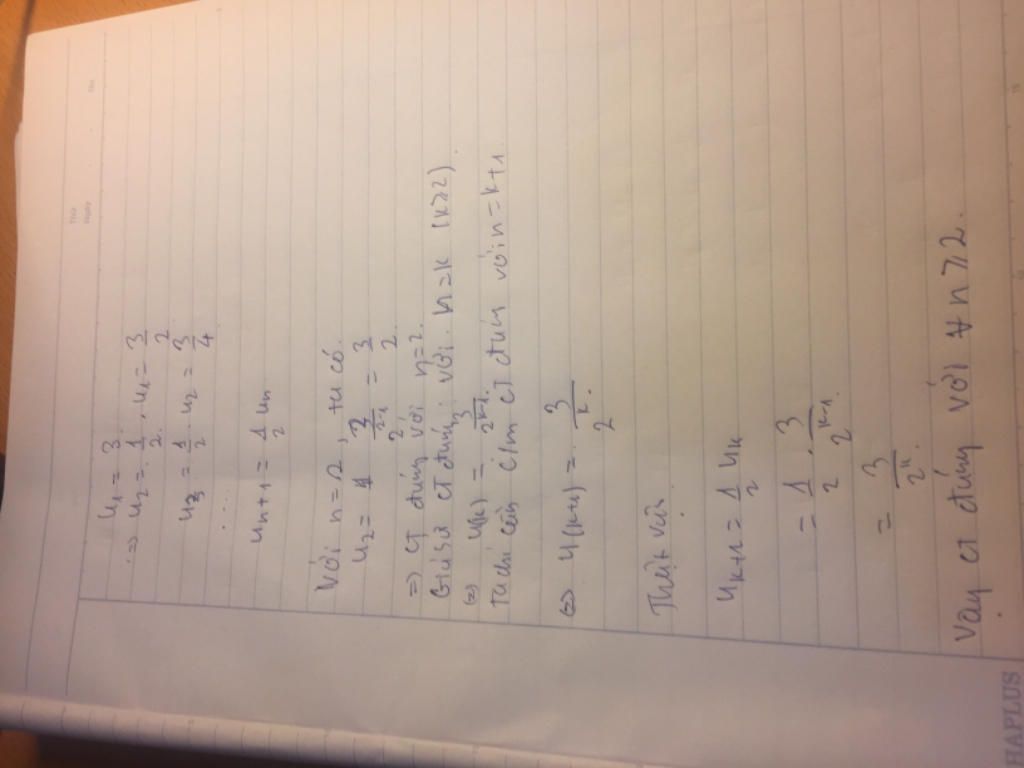 u₁ = 3
=> u₂ = 1/2 . u₁ = 3/2
u₃ = 1/2 . u₂ = 3/4
....
uₙ₊₁ = 1/2 uₙ
Với n = 2, ta có.
u₂ = 3/2²⁻¹ = 3/2.
=> CT đúng với n=2.
Giả sử CT đúng với n=k (k≥2).
(=) u(k) = 3/2ᵏ⁻¹.
Ta chỉ cần c/m CT đúng với n=k+1
<=> u(k+1) = 3/2ᵏ.
Thật vậy
uₖ₊₁ = 1/2 uₖ
= 1/2 . 3/2ᵏ⁻¹
= 3/2ᵏ.
Vậy CT đúng với ∀ n ≥ 2.
HAPLUS